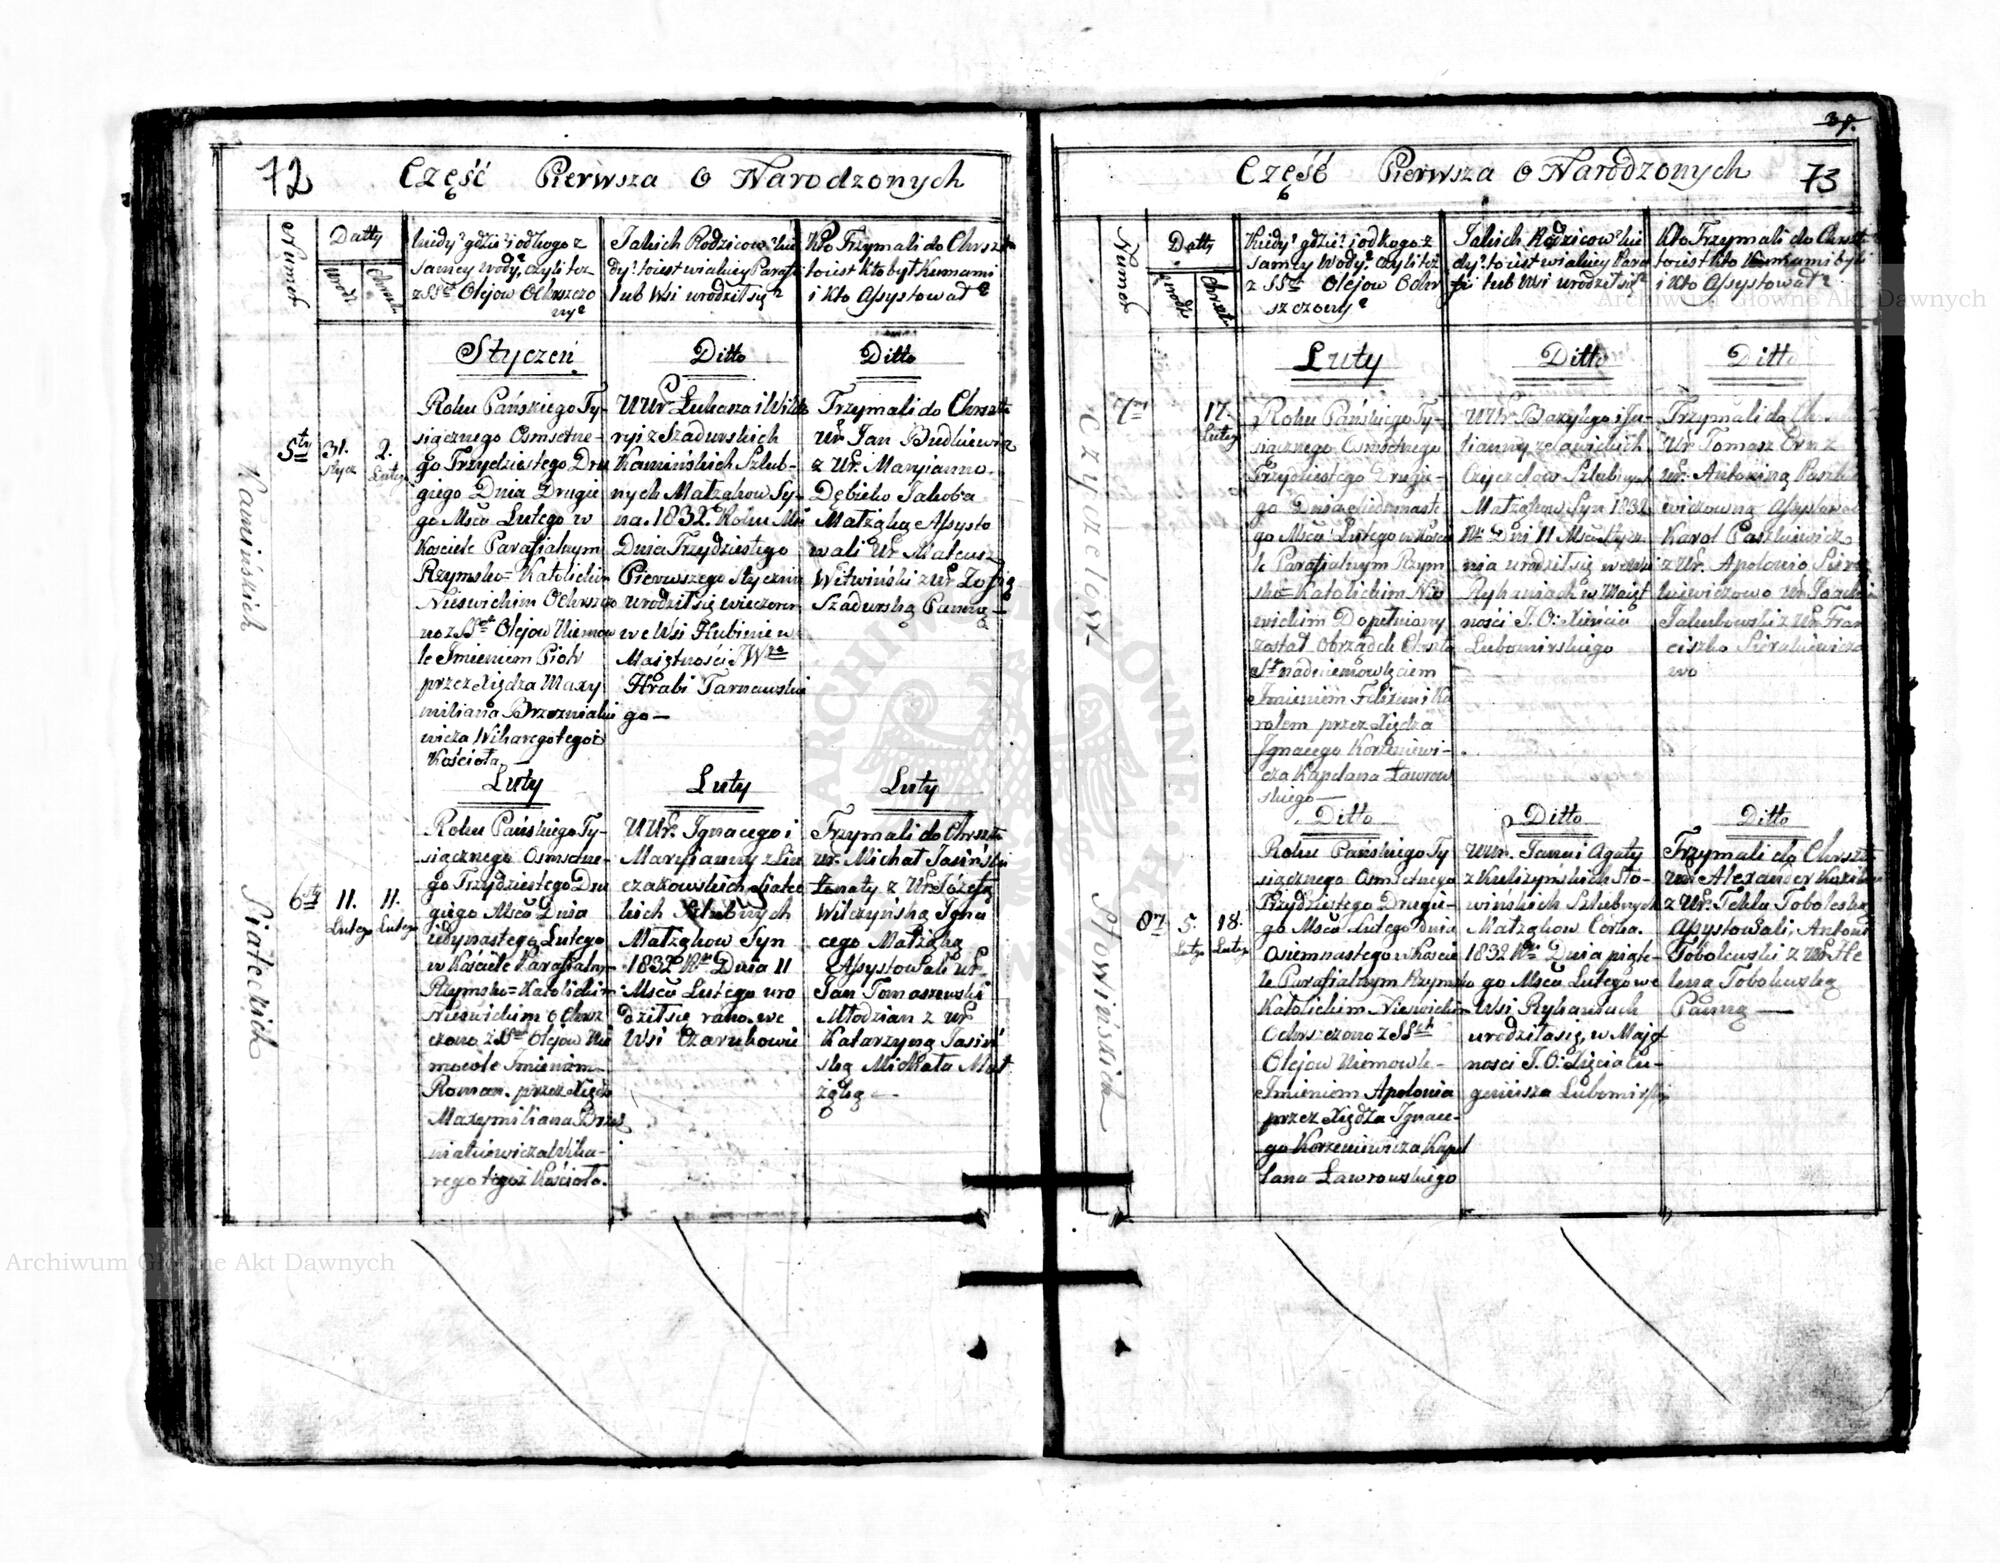 37.
72 Część Pierwsza O Narodzonych
Numer
Datty
urodz.
Chrzt.
kiedy? gdzie? i od kogo z
samey wody? czyli też
z SStu Olejow Ochrzczo
ny?
Jakich Rodzicow? kie
dy? to iest w iakiey Parafi
lub Wsi urodził się?
Kto Trzymali do Chrztu
to iest kto był Kumami
i kto Assystował?
Kamińskich
5ty
31.
Stycz.
2.
Luteg
Styczeń
Roku Pańskiego Ty-
siącznego Osmsetne-
go Trzydziestego Dru
giego Dnia Drugie
go Msca Lutego w
Kosciele Parafialnym
Rzymsko=Katolickim
Nieswickim Ochrzczo
no z SStu Olejow Niemow
le Imieniem Piotr
przez Xiędza Maxy
miliana Brzeznieki
wicza Wikarego tegoż
Kościoła.
Ditto
UUr. Łukasza i Wikto
ryi z Szadurskich
Kamińskich Szlub-
nych Małżąkow Sy-
na. 1832. Roku
Dnia Trzydziestego
Pierwszego Stycznia
urodził się wieczorem
we Wsi Hłubinie w
Maiętności JW
Hrabi Tarnawskie
go —
Ditto
Trzymali do Chrztu
Ur. Jan Budkiewicz
z Ur. Maryianno.
Dębicko Jakoba
Małżąką Assysto
wali Ur. Mateusz
Wetwiński z Ur. Zofią
Szadurską Panną —
Piateckich
6ty
11.
Lutego
11.
Lutego
Luty
Roku Pańskiego Ty-
siącznego Osmsetne-
go Trzydziestego Dru
giego Msca Dnia
iedynastego Lutego
w Kościele Parafialnym
Rzymsko=Katolickim
Nieswickim Ochrz
czono z SStu Olejow Nie
mowle Imieniem
Roman. przez Xiędza
Maxymiliana Brzez
niakiewicza Wika-
rego tegoż Kościoła.
Luty
UUr. Ignacego i
Maryianny z Lin
czakowskich Piatec
kich Szlubnych
Małżąkow Syn
1832 Ru Dnia 11
Msca Lutego uro
dził się rano. we
Wsi Czarukowie
Luty
Trzymali do Chrztu
Ur. Michał Jasiński
Żonaty z Ur. Józefą
Wilczyńską Igna
cego Małżąką
Assystowali Ur.
Jan Tomaszewski
Młodzian z Ur.
Katarzyną Jasiń
ską Michała Mał
żąką —
Część Pierwsza O Narodzonych 73
Numer
Datty
urodz.
Chrzt.
Kiedy? gdzie? i od kogo z
samey Wody? czyli też
z SStu Olejow Ochr
szczony?
Jakich Rodzicow? kie
dy? to iest w iakiey Para
fii lub Wsi urodził się?
Kto Trzymali do Chrztu
to iest kto Kumami byli
i Kto Assystował?
Czyczelow.
7my
17.
Luteg
Luty
Roku Pańskiego Ty-
siącznego Osmsetnego
Trzydziestego Drugie-
go Dnia siedemnaste
go Msca Lutego w Kosci
le Parafialnym Rzym
sko=Katolickim Nie
swickim Dopełniony
został Obrządek Chrztu
St. nad niemowlęciem
Imieniem Felixem i Ka
rolem przez Xiędza
Ignacego Korzeniewi-
cza Kapelana Ławrow
skiego —
Ditto
UUr. Bazylego i Ju-
lianny
Małżąkow Syn 1832
Ru Dnia 11 Msca Stycz
nia urodził się w Wsi
Rykaniach w Maięt
ności J. O: Xięcia
Lubomirskiego
Ditto
Trzymali do Chrztu
Ur. Tomasz
z Ur. Antoniną
Karol Paszkiewicz
z Ur. Apolonio Siera
kiewiczowo Ur. Joachim
Jakubowski z Ur. Fran
ciszko Sierakiewiczo
wo
Słowińskich
87
5.
Luteg
18.
Luteg
Ditto
Roku Pańskiego Ty
siącznego Osmsetnego
Trzydziestego Drugie-
go Msca Lutego dnia
Osiemnastego w Koscie
le Parafialnym Rzymsko
Katolickim Nieswickim
Ochrzczono z SStu
Olejow Niemowle-
Imieniem Apolonia
przez Xiędza Ignace-
go Korzeniewicza Kape
lana Ławrowskiego
Ditto
UUr. Jana i Agaty
z Kuliżymskich Sło-
wińskich Szlubnych
Małżąkow Corka.
1832 Ru Dnia piąte-
go Msca Lutego we
Wsi Rykaniach
urodziła się, w Maję
tności J. O: Xięcia Eu-
geniusza Lubomirski
Ditto
Trzymali do Chrztu
Ur. Alexander
z Ur. Teklą Tobolesko
Assystowali, Antoni
Tobolewski z Ur. He
leną Tobolewską
Panną —
Archiwum Główne Akt Dawnych
Archiwum Główne Akt Dawnych